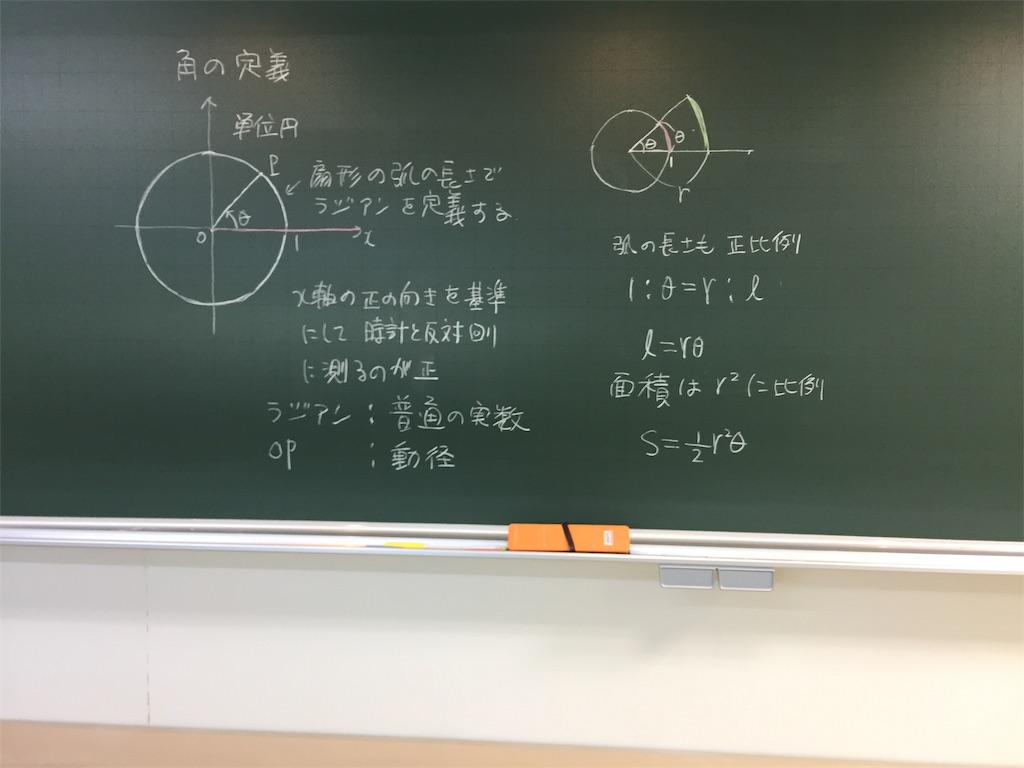 角の定義
単位円
P
θ
O
1
x
扇形の弧の長さで
ラジアンを定義する
x軸の正の向きを基準
にして時計と反対回り
に測るのが正
ラジアン:普通の実数
OP :動径
θ
θ
1
r
弧の長さも正比例
1:θ=r:l
l=rθ
面積はr²に比例
S=1/2r²θ